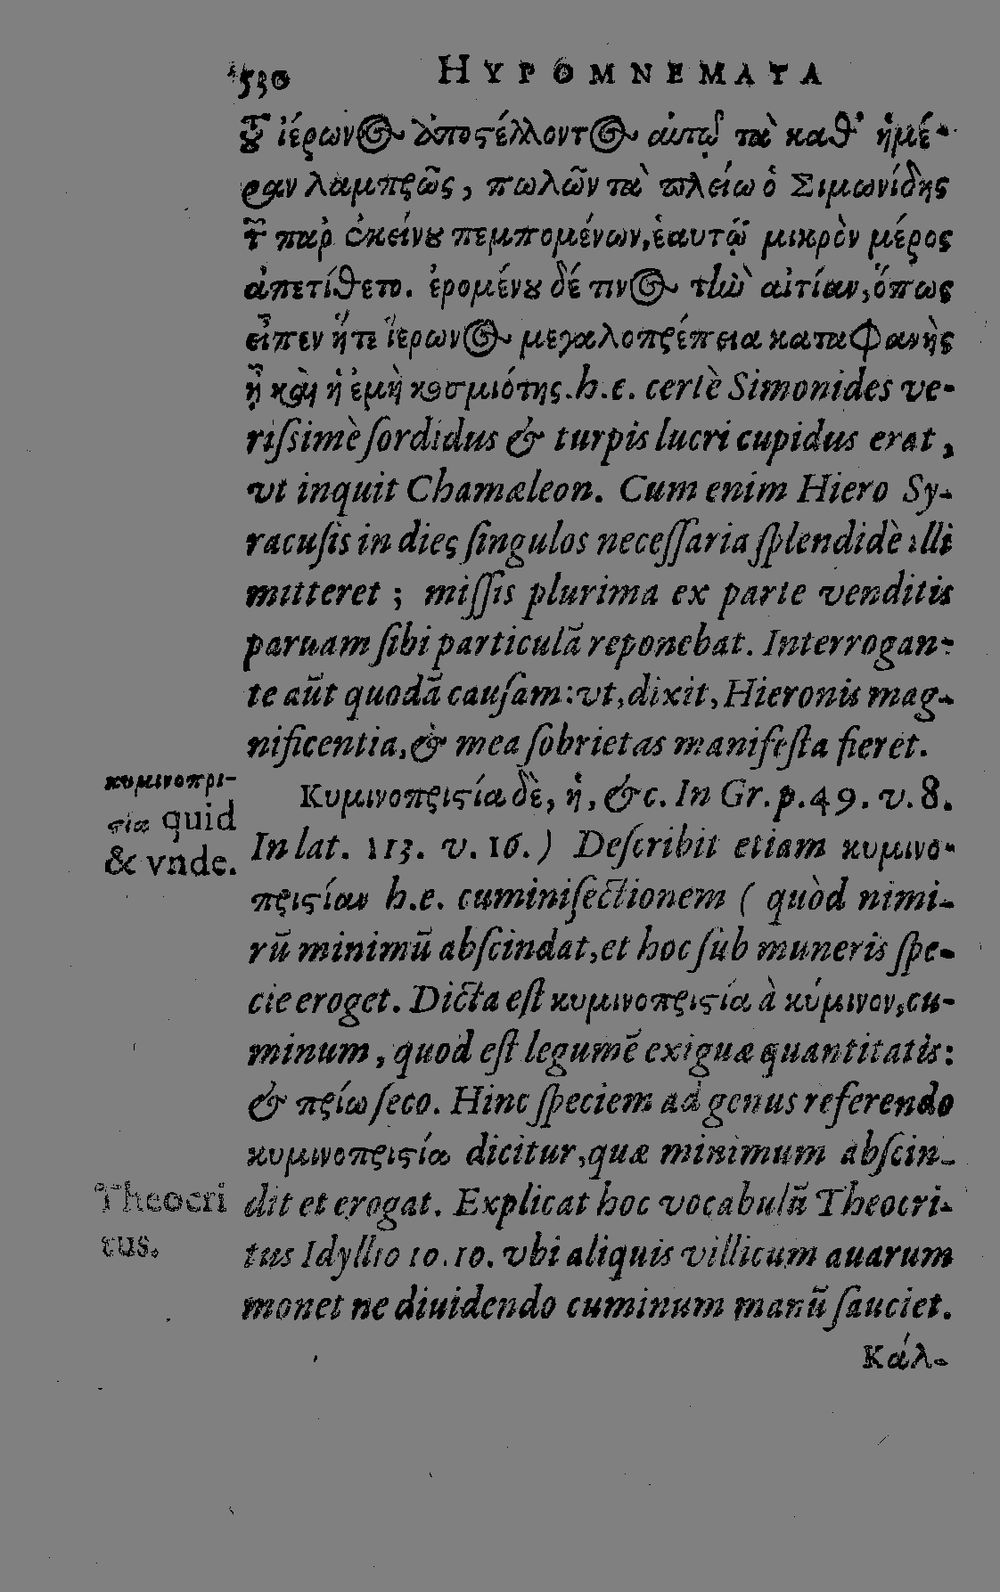 530 HYPOMNEMATA
τοῦ ἱέρωνος ἀποστέλλοντος αὐτῷ τὰ καθ' ἡμέ-
ραν λαμπρῶς, πωλῶν τὰ πλείω ὁ Σιμωνίδης
τῶν παρ' ἐκείνου πεμπομένων, ἑαυτῷ μικρὸν μέρος
ἀπετίθετο. ἐρομένου δέ τινος τὴν αἰτίαν, ὅπως
εἶπεν ἥτε ἵερωνος μεγαλοπρέπεια καταφανὴς
ᾖ καὶ ἡ ἐμὴ κοσμιότης. h. e. certè Simonides ve-
rißimè ſordidus & turpis lucri cupidus erat,
vt inquit Chamæleon. Cum enim Hiero Sy-
racuſis in dies ſingulos neceſſaria ſplendidè illi
mitteret ; miſſis plurima ex parte venditis
paruam ſibi particulã reponebat. Interrogan-
te aũt quodã cauſam: vt, dixit, Hieronis mag-
nificentia, & mea ſobrietas manifeſta fieret.
Κυμινοπριστία δὲ, ἡ, &c. In Gr. p. 49. v. 8.
In lat. 113. v. 16. ) Deſcribit etiam κυμινο-
πριστίαν h.e. cuminiſectionem ( quòd nimi-
rũ minimũ abſcindat, et hoc ſub muneris ſpe-
cie eroget. Dicta eſt κυμινοπριστία à κύμινον, cu-
minum, quod eſt legumẽ exiguæ quantitatis:
& πρίω ſeco. Hinc ſpeciem ad genus referendo
κυμινοπριστία dicitur, quæ minimum abſcin-
dit et erogat. Explicat hoc vocabulũ Theocri-
tus Idyllio 10. 10. vbi aliquis villicum auarum
monet ne diuidendo cuminum manũ ſauciet.
Κάλ-
κυμινοπρι-
στία quid
& vnde.
Theocri
tus.